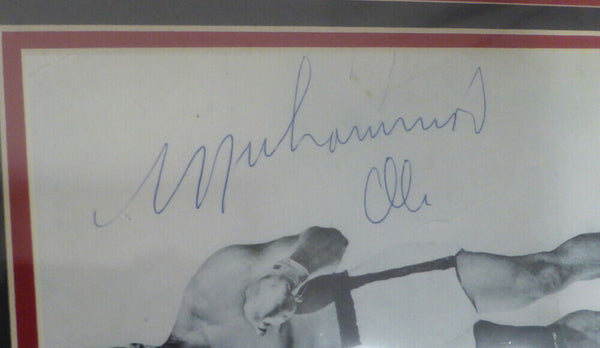 Muhammad
Ali